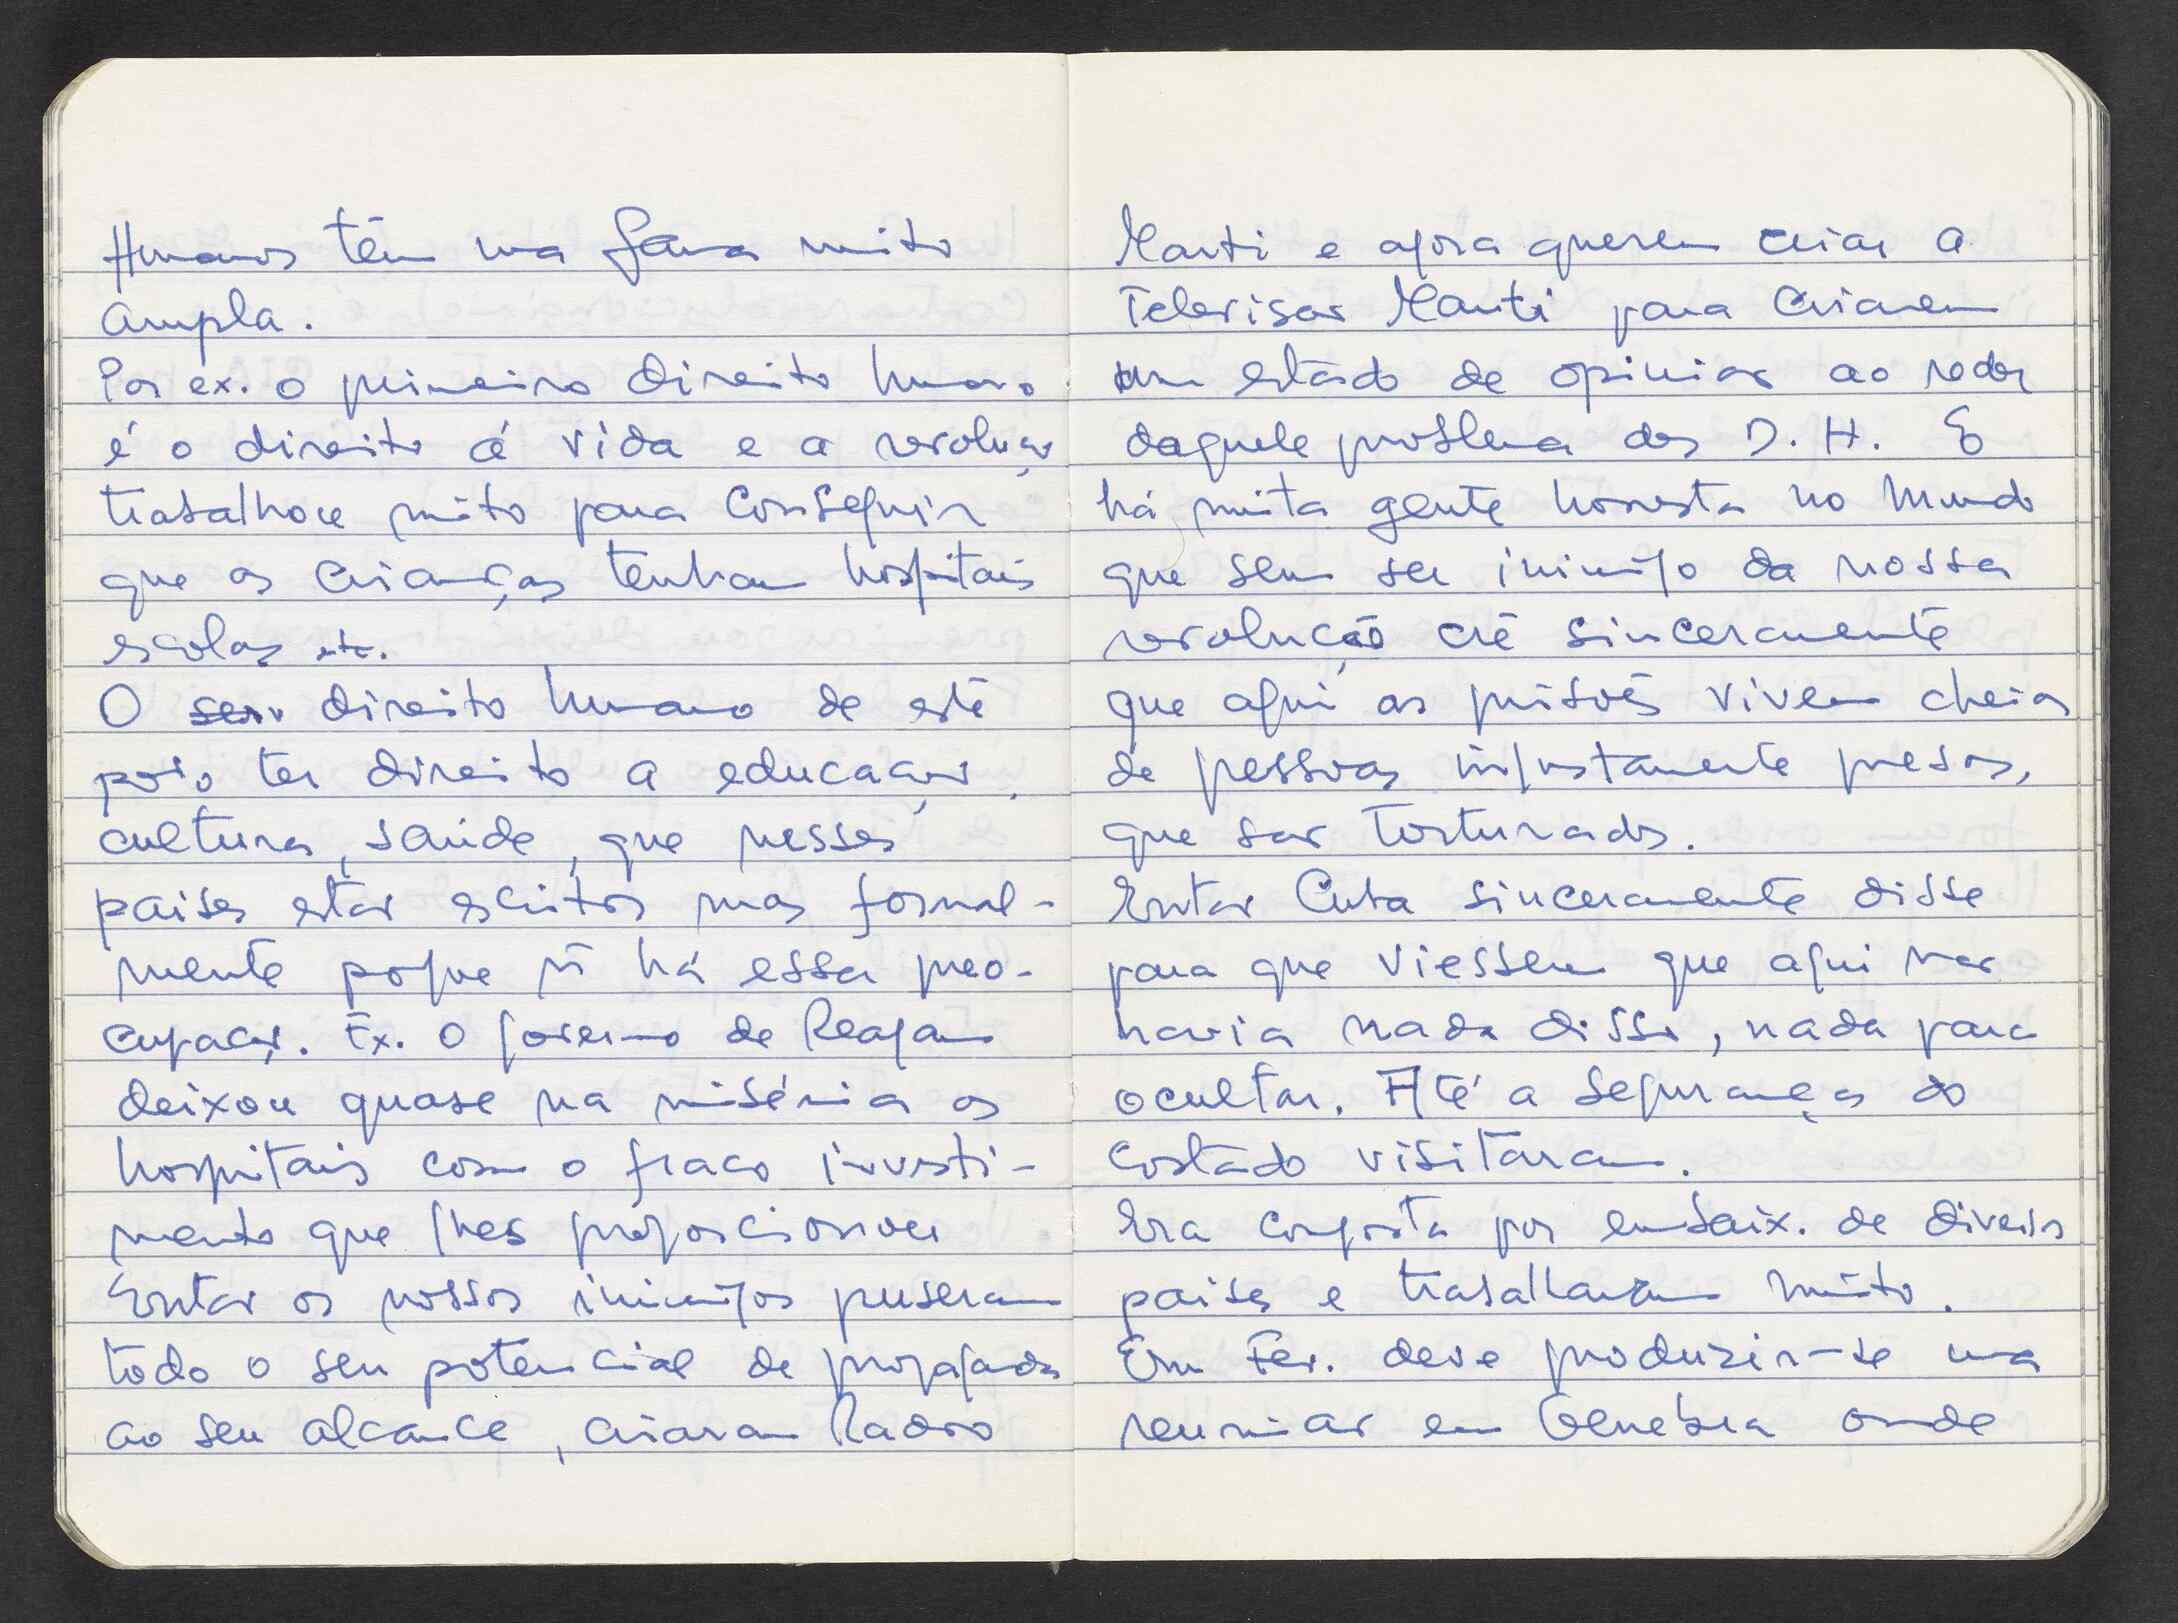 Humanos têm uma gama muito
ampla.
Por ex. o primeiro direito humano
é o direito à vida e a revolução
trabalhou muito para conseguir
que as crianças tenham hospitais
escolas etc.
O seu direito humano de este
povo ter direito a educação,
cultura, saúde, que nesses
países estão escritos mas formal-
mente porque ñ há essa preo-
cupação. Ex. O governo de Reagan
deixou quase na miséria os
hospitais com o fraco investi-
mento que lhes proporcionou
Então os nossos inimigos puseram
todo o seu potencial de propaganda
ao seu alcance, criaram Radio
Marti e agora querem criar a
Televisão Marti para criarem
um estado de opinião ao redor
daquele problema dos D. H. E
há muita gente honesta no mundo
que sem ser inimigo da nossa
revolução crê sinceramente
que aqui as prisões vivem cheias
de pessoas injustamente presas,
que são torturados.
Então Cuba sinceramente disse
para que viessem que aqui não
havia nada disso, nada para
ocultar. Até a segurança do
estado visitaram.
Era composta por embaix. de diversos
países e trabalharam muito.
Em Fev. deve produzir-se uma
reunião em Genebra onde